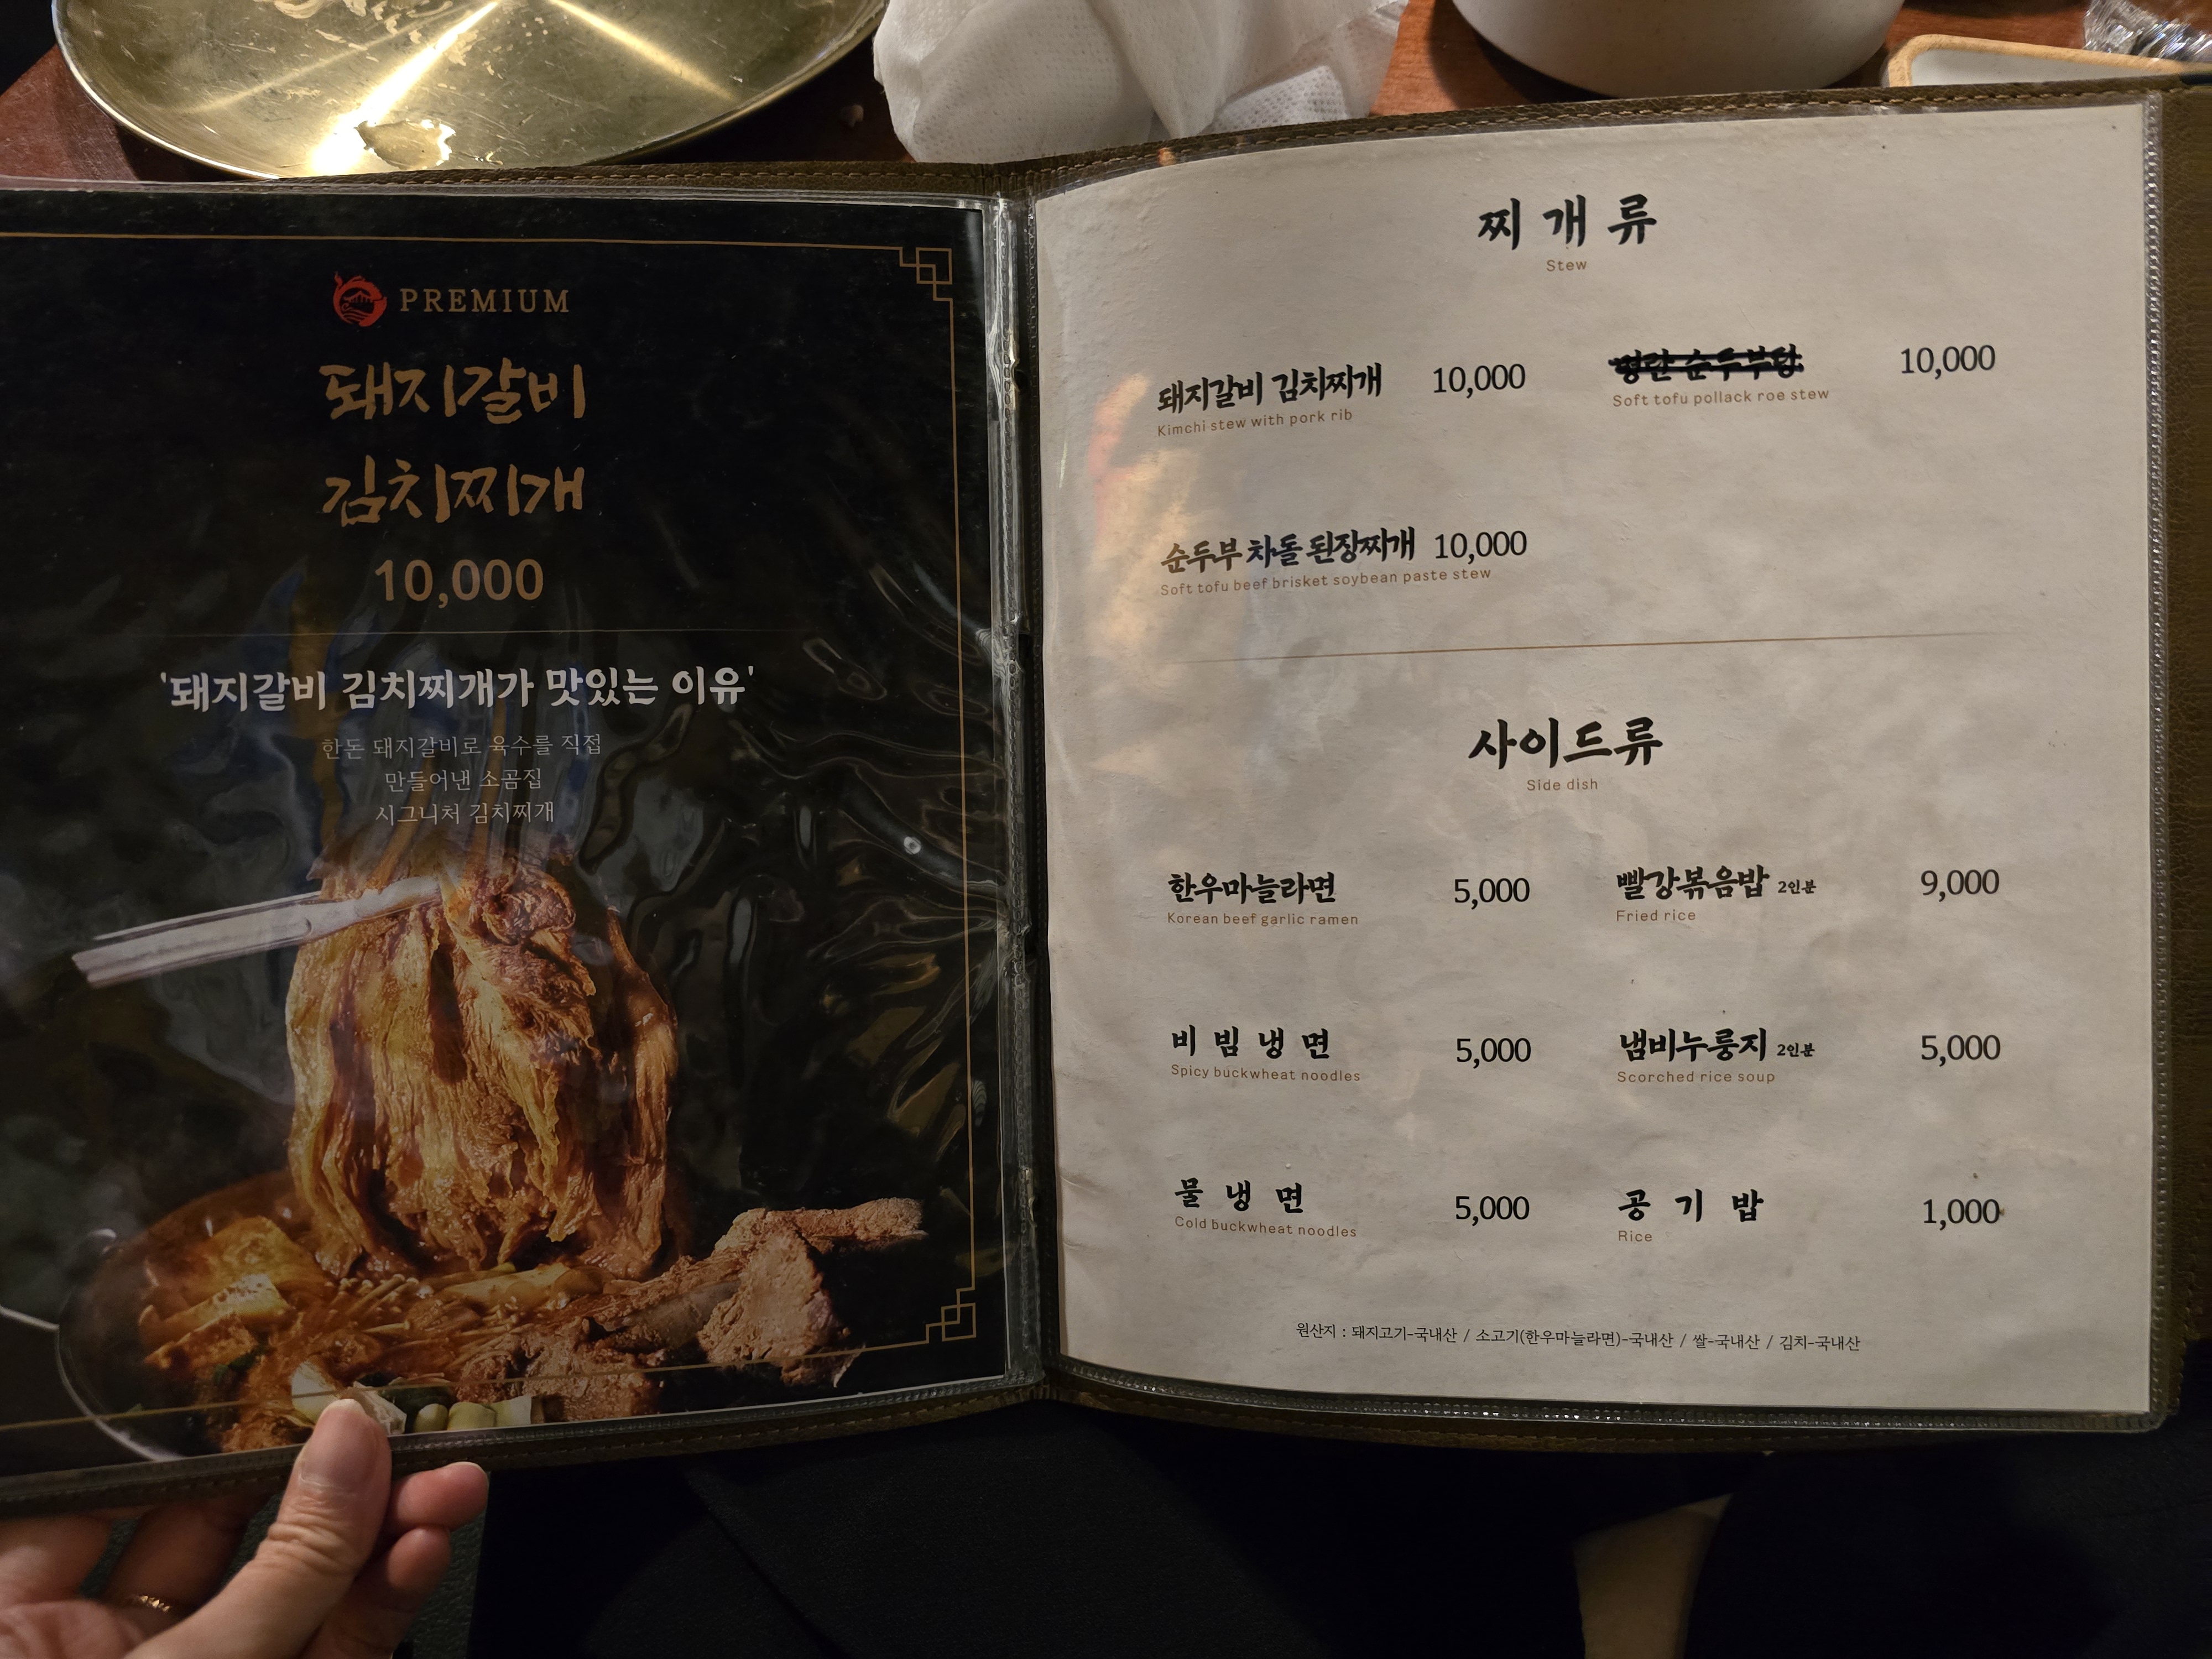 PREMIUM
돼지갈비
김치찌개
10,000
'돼지갈비 김치찌개가 맛있는 이유'
한돈 돼지갈비로 육수를 직접
만들어낸 소곰집
시그니처 김치찌개
찌개류
Stew
돼지갈비 김치찌개 10,000
Kimchi stew with pork rib
명란 순두부탕 10,000
Soft tofu pollack roe stew
순두부 차돌 된장찌개 10,000
Soft tofu beef brisket soybean paste stew
사이드류
Side dish
한우마늘라면 5,000
Korean beef garlic ramen
빨강볶음밥 2인분 9,000
Fried rice
비빔냉면 5,000
Spicy buckwheat noodles
냄비누룽지 2인분 5,000
Scorched rice soup
물냉면 5,000
Cold buckwheat noodles
공기밥 1,000
Rice
원산지 : 돼지고기-국내산 / 소고기(한우마늘라면)-국내산 / 쌀-국내산 / 김치-국내산